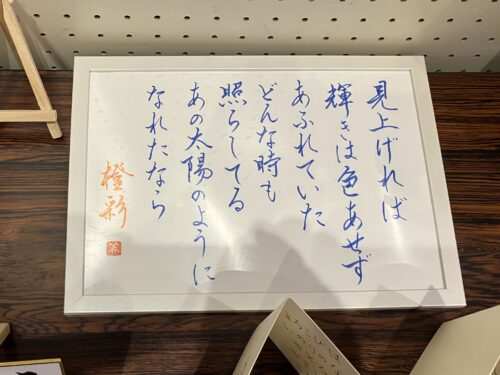 見上げれば
輝きは色あせず
あふれていた
どんな時も
照らしてる
あの太陽のように
なれたなら
橙彩